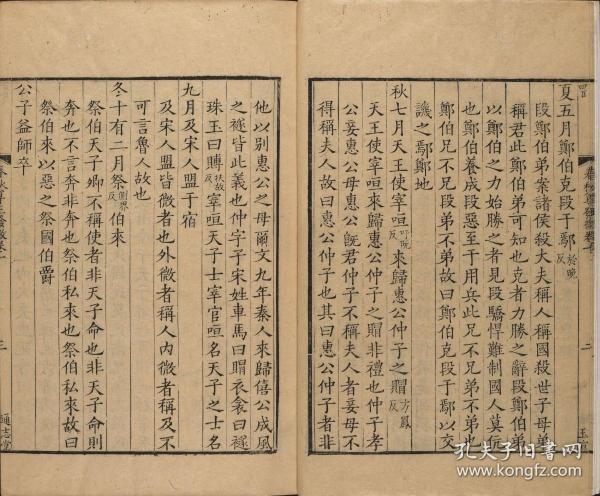 夏五月鄭伯克段于鄢於晚反
段鄭伯弟案諸侯殺大夫稱人稱國殺世子母弟
稱君此鄭伯弟可知也克者力勝之辭段鄭伯弟
以鄭伯之力始勝之者見段驕悍難制國人莫伉
也鄭伯養成段惡至于用兵此兄不兄弟不弟也
鄭伯兄不兄段弟不弟故曰鄭伯克段于鄢以交
譏之鄢鄭地
秋七月天王使宰咺吁阮反來歸惠公仲子之賵方鳳反
天王使宰咺來歸惠公仲子之賵非禮也仲子孝
公妾惠公母惠公旣君仲子不稱夫人者妾母不
得稱夫人故曰惠公仲子也其曰惠公仲子者非
他以別惠公之母爾文九年秦人來歸僖公成風
之襚皆此義也仲字子宋姓車馬曰賵衣衾曰襚
珠玉曰賻扶故反宰咺天子士宰官咺名天子之士名
九月及宋人盟于宿
及宋人盟皆微者也外微者稱人內微者稱及不
可言魯人故也
冬十有二月祭側界反伯來
祭伯天子卿不稱使者非天子命也非天子命則
奔也不言奔非奔也祭伯私來也祭伯私來故曰
祭伯來以惡之祭國伯爵
公子益師卒
二
三
通志堂
孔夫子旧书网
www.kongfz.com